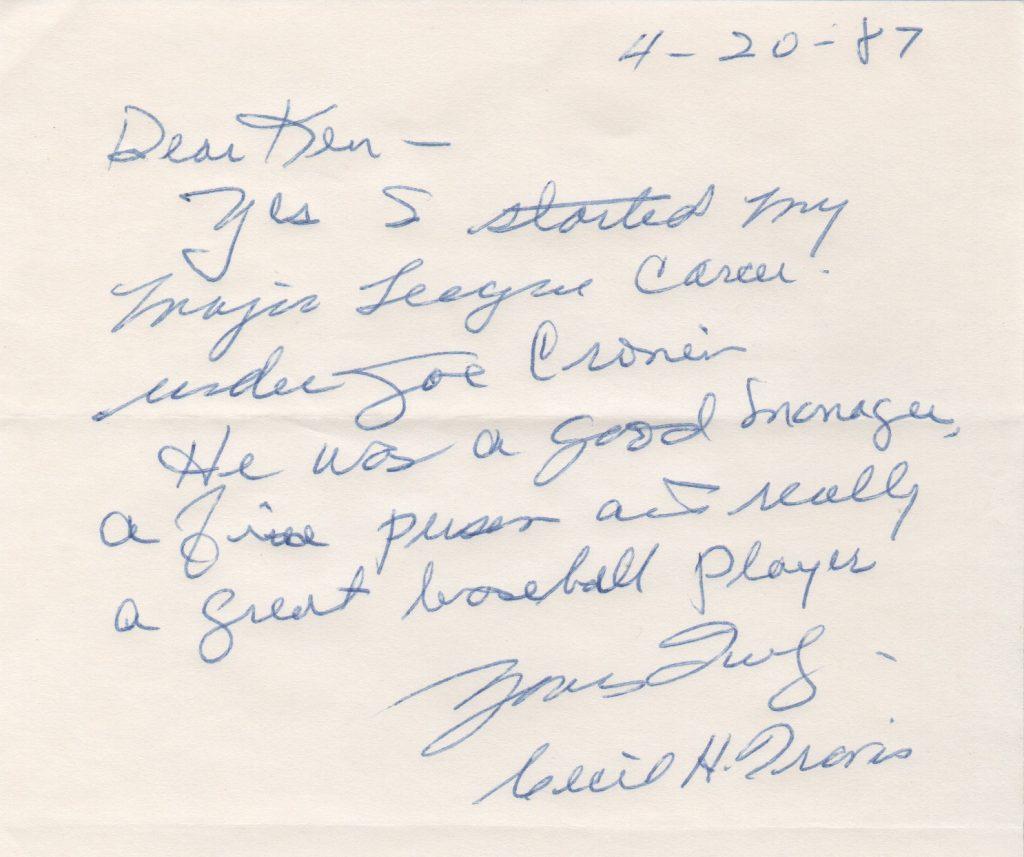 4-20-87
Dear Ken -
Yes I started my
Major League Career.
under Joe Cronin
He was a good manager,
a fine person and really
a great baseball player
Yours Truly -
Cecil H. Travis